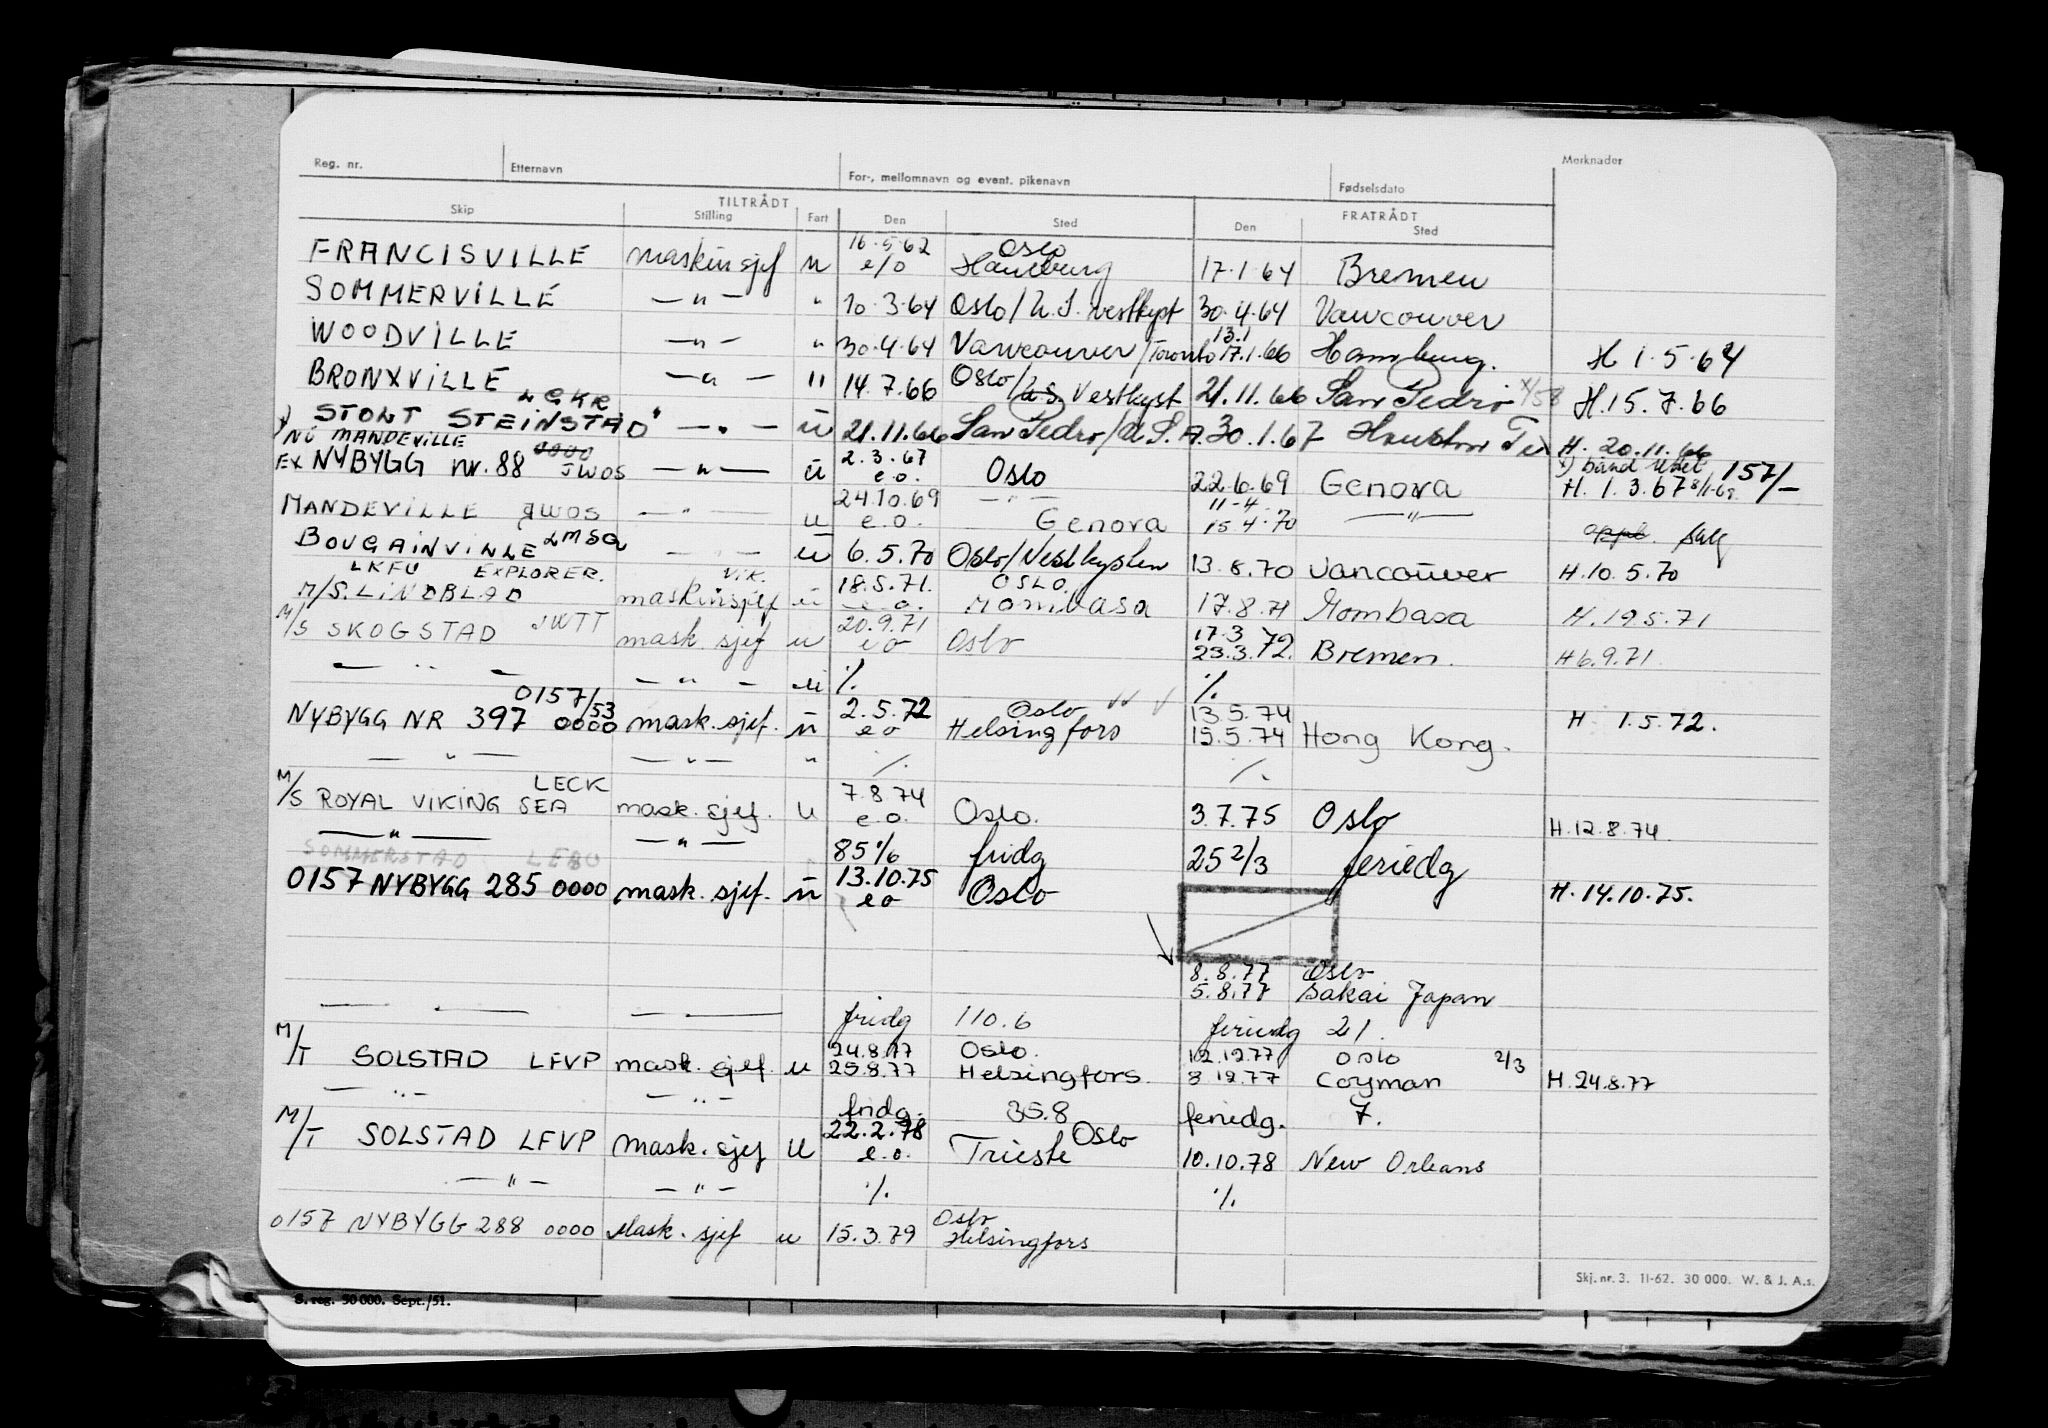 Reg. nr. Etternavn For-, mellomnavn og event. pikenavn Fødselsdato Merknader
TILTRÅDT FRATRÅDT
Skip Stilling Fart Den Sted Den Sted
FRANCISVILLE maskinsjef u 16.5.62 e/o Oslo Hamburg 17.1.64 Bremen
SOMMERVILLE — " — " 10.3.64 Oslo/U.S. vestkyst 30.4.64 Vancouver
WOODVILLE — " — " 30.4.64 Vancouver/Toronto 13.1 17.1.66 Hamburg. H 1.5.64
BRONXVILLE — " — " 14.7.66 Oslo/U.S. Vestkyst 21.11.66 San Pedro x/58 H.15.7.66
LGKR
STOLT STEINSTAD" — " — u 21.11.66 San Pedro/U.S.A. 30.1.67 Houston Tex H. 20.11.66
NU MANDEVILLE 0000
EX NYBYGG nr. 88 JWOS — " — u 2.3.67 e.o. Oslo 22.6.69 Genova H. 1.3.67 157/-
MANDEVILLE JWOS — " — u 24.10.69 e.o. — " — Genova 11-4- 15.4.70 — " —
BOUGAINVILLE LMSQ — " — u 6.5.70 Oslo/Vestkysten 13.8.70 Vancouver H.10.5.70
LKFU EXPLORER.
M/S. LINDBLAD vik. maskinsjef u 18.5.71. e.o. OSLO. Mombasa 17.8.71 Mombasa H.19.5.71
M/S SKOGSTAD JWTT mask. sjef u 20.9.71 eo Oslo 17.3 23.3.72. Bremen. H6.9.71.
— " — — " — u ./. ./.
0157/53
NYBYGG NR 397 0000 mask. sjef. u 2.5.72 eo Oslo Helsingfors 13.5.74 15.5.74 Hong Kong. H 1.5.72.
— " — — " — " ./. ./.
LECK
M/S ROYAL VIKING SEA mask. sjef. u 7.8.74 e.o. Oslo. 3.7.75 Oslo H.12.8.74.
— " — — " — 85 1/6 fridg 25 2/3 feriedg
SOMMERSTAD
0157 NYBYGG 285 0000 mask. sjef. u 13.10.75 eo Oslo H.14.10.75.
8.8.77 Oslo
5.8.77 Sakai Japan
— " — — " — fridg 110.6 feriedg 21.
M/T SOLSTAD LFVP mask. sjef. u 24.8.77 25.8.77 Oslo. Helsingfors. 12.12.77 Oslo 2/3 8.12.77 Coyman H.24.8.77
— " — — " — fridg. 35.8 feriedg. 7.
M/T SOLSTAD LFVP mask. sjef u 22.2.78 e.o. Oslo Trieste 10.10.78 New Orleans
— " — — " — ./. ./.
0157 NYBYGG 288 0000 Mask. sjef u 15.3.79 Oslo Helsingfors
Skj. nr. 3. 11-62. 30 000. W. & J. A.s.
S. reg. 50 000. Sept./51.